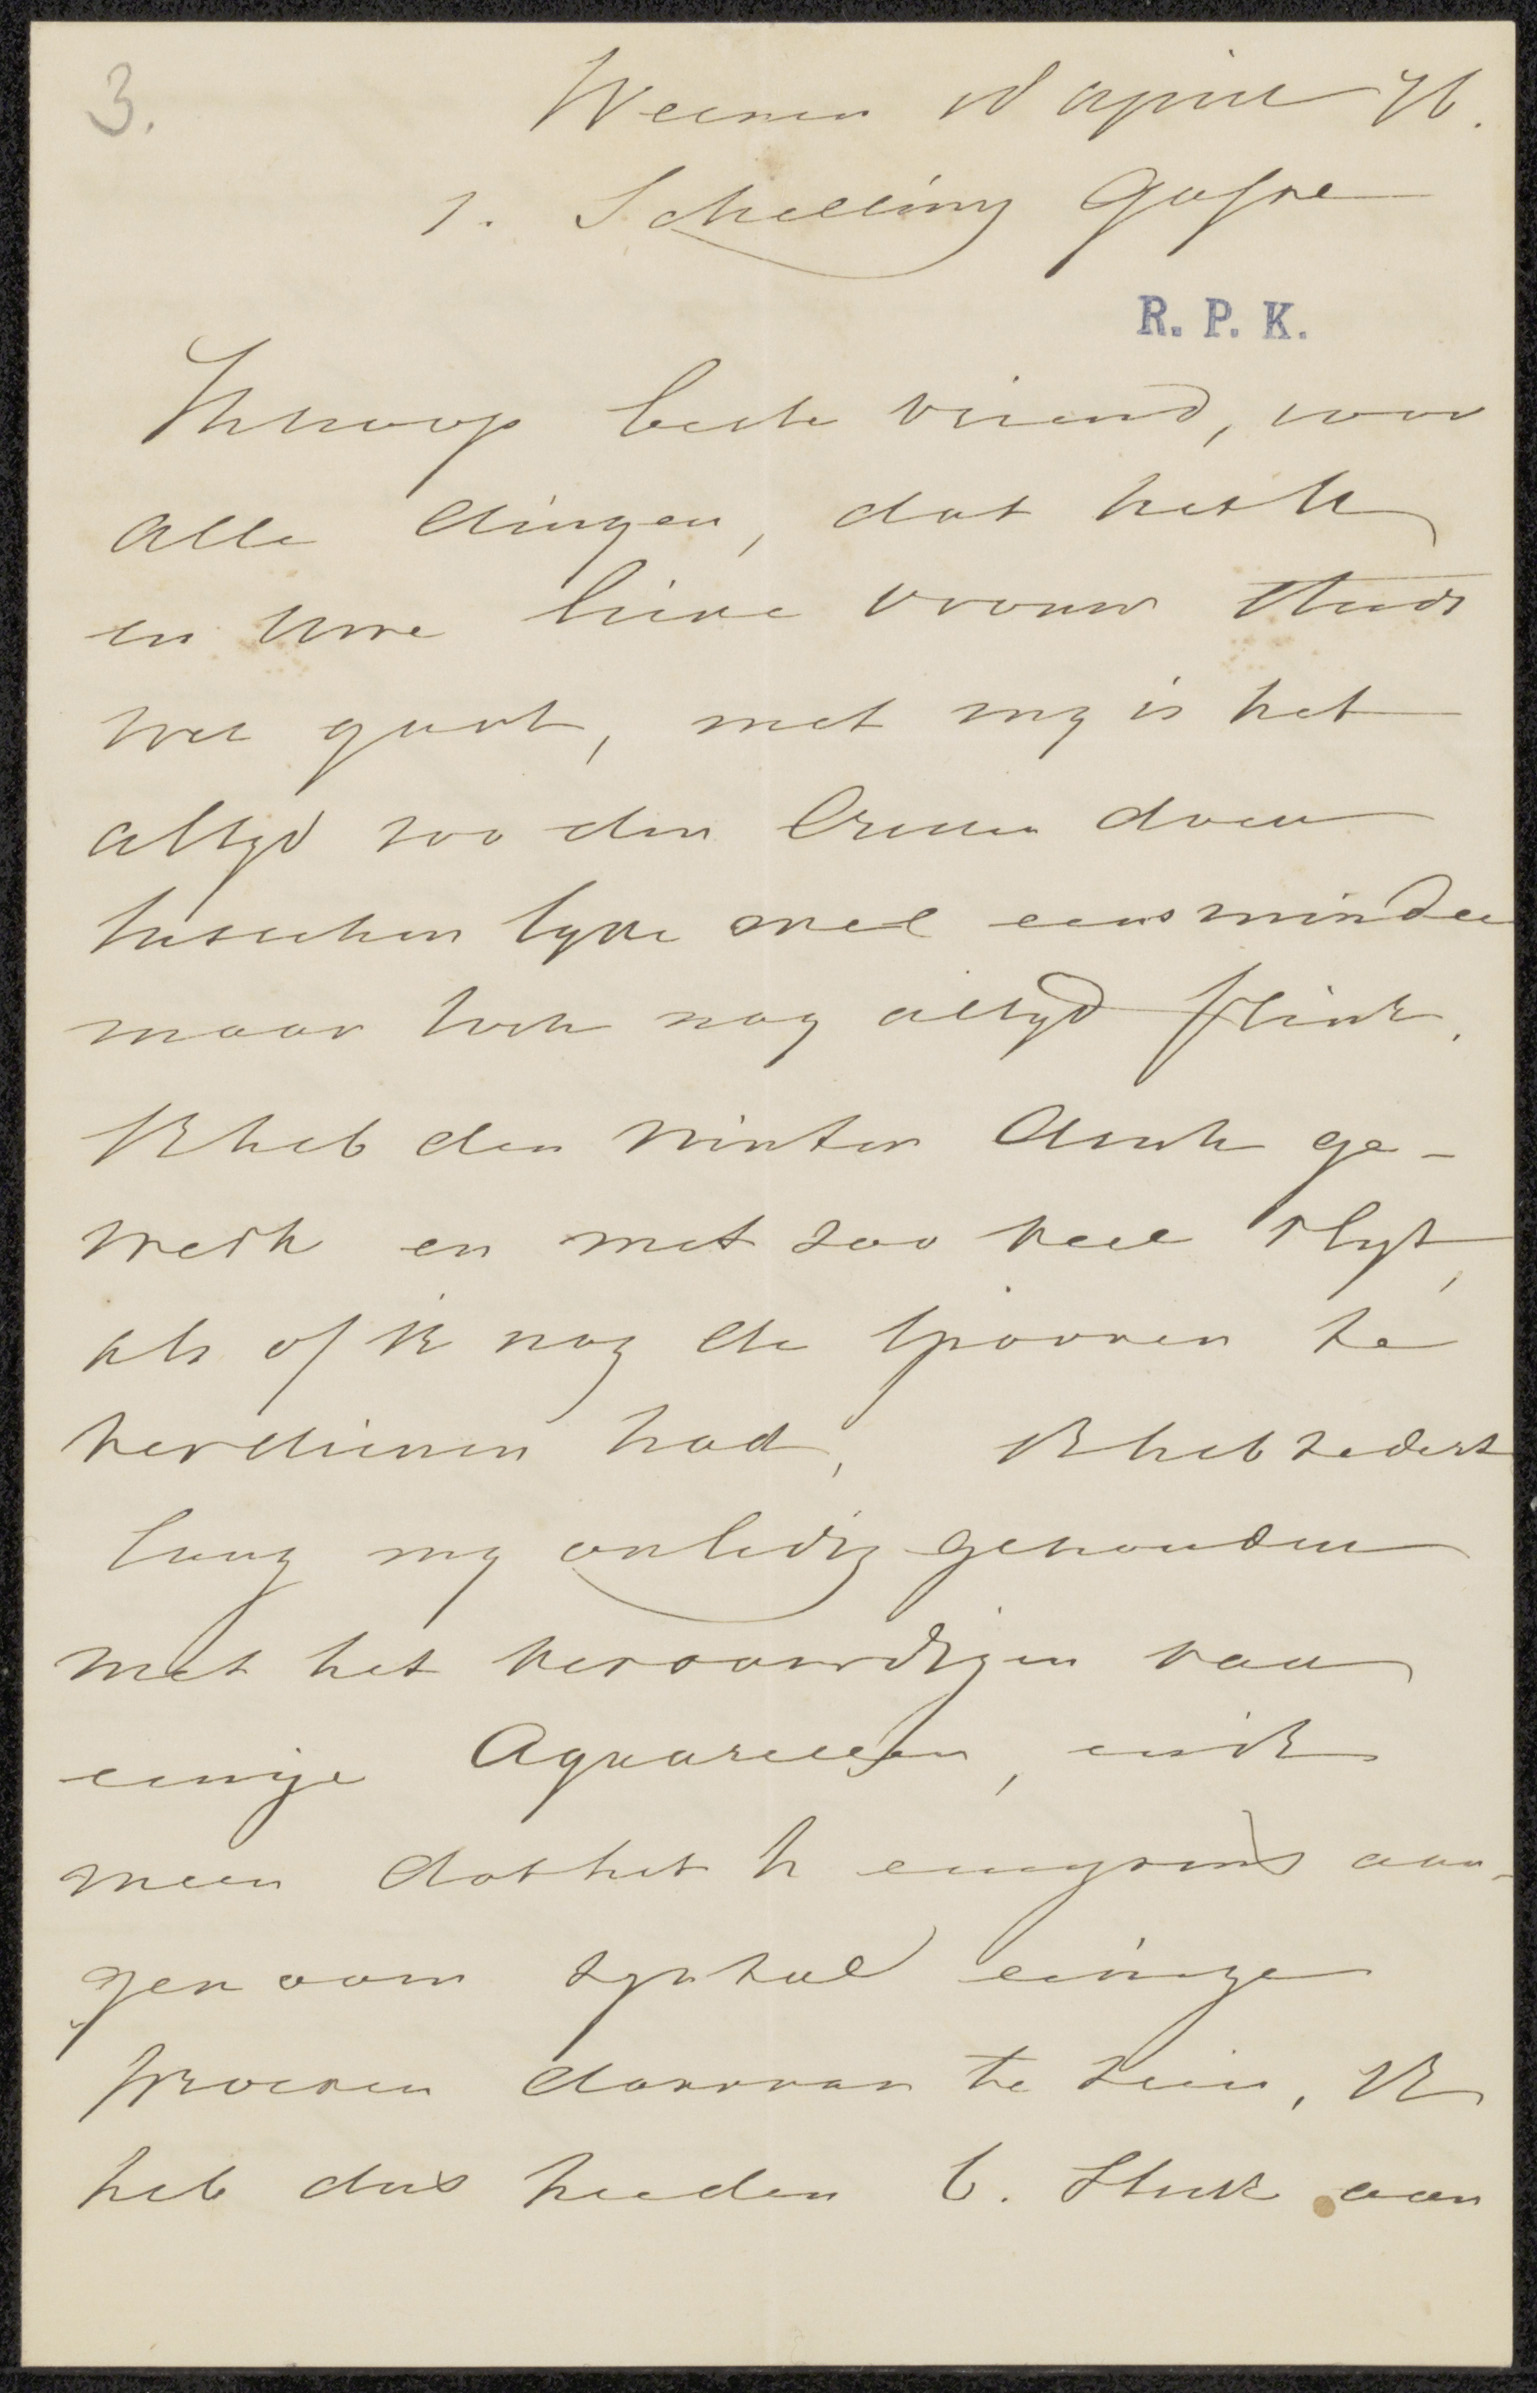 3.
Weenen 18 April 76.
1. Schelling Gasse
R. P. K.
Ik hoop beste vriend, voor
alle dingen, dat het U
en Uwe lieve vrouw steeds
wel gaat, met my is het
altyd zoo den
tusschen tyde wel eens minder
maar toch nog altyd flink.
Ik heb den winter door ge-
werkt en met zoo veel vlyt,
als of ik nog de spooren te
verdienen had, Ik heb sedert
lang my onledig gehouden
met het vervaardigen van
einige Aquarellen, en ik
meen dat het U eenigsins aan-
genaam zyn zal einige
proeven daarvan te zien, Ik
heb dus heeden 6. Stuk aan